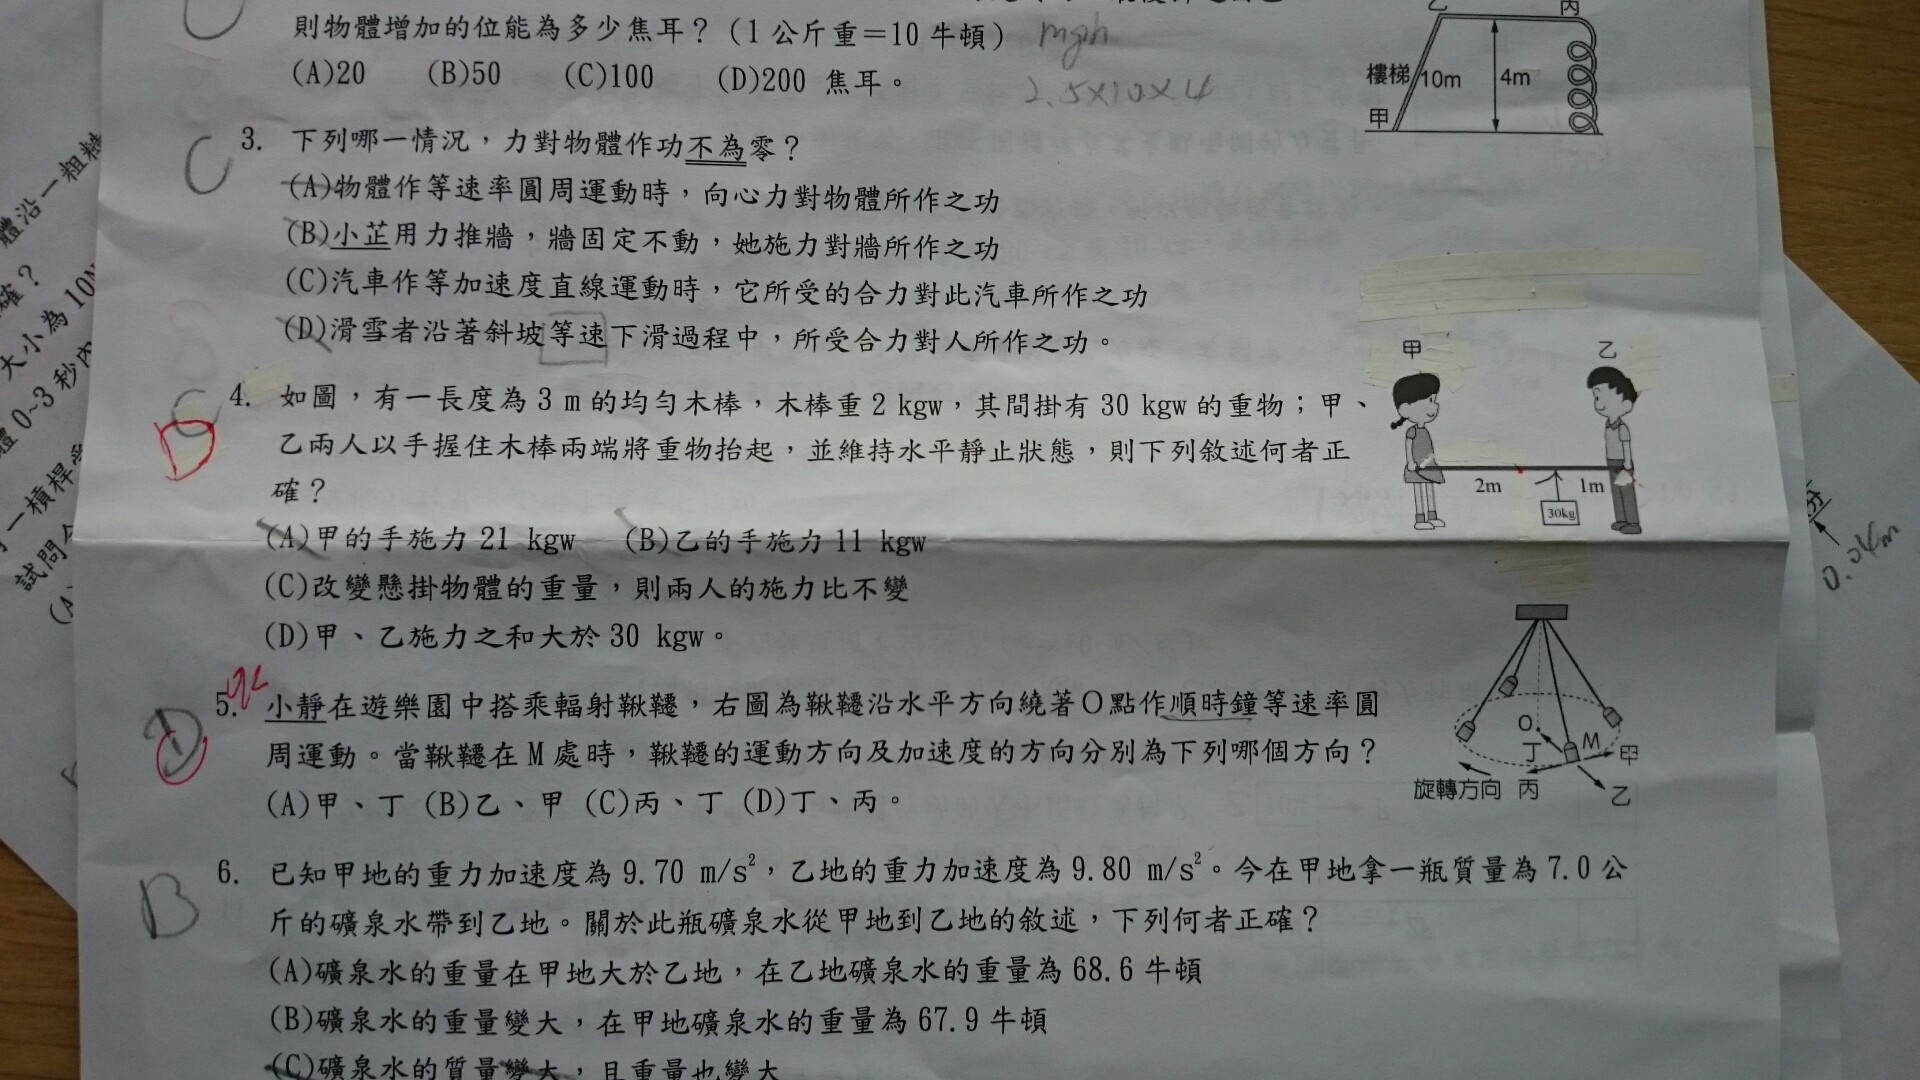 則物體增加的位能為多少焦耳？(1 公斤重＝10 牛頓) mgh
(A)20 (B)50 (C)100 (D)200 焦耳。 2.5×10×4
乙 丙
樓梯 10m 4m
甲
C 3. 下列哪一情況，力對物體作功不為零？
(A)物體作等速率圓周運動時，向心力對物體所作之功
(B)小芷用力推牆，牆固定不動，她施力對牆所作之功
(C)汽車作等加速度直線運動時，它所受的合力對此汽車所作之功
(D)滑雪者沿著斜坡等速下滑過程中，所受合力對人所作之功。
D 4. 如圖，有一長度為 3 m 的均勻木棒，木棒重 2 kgw，其間掛有 30 kgw 的重物；甲、
乙兩人以手握住木棒兩端將重物抬起，並維持水平靜止狀態，則下列敘述何者正
確？
(A)甲的手施力 21 kgw (B)乙的手施力 11 kgw
(C)改變懸掛物體的重量，則兩人的施力比不變
(D)甲、乙施力之和大於 30 kgw。
甲 乙
2m 1m
30kg
5. 小靜在遊樂園中搭乘輻射鞦韆，右圖為鞦韆沿水平方向繞著O點作順時鐘等速率圓
周運動。當鞦韆在 M 處時，鞦韆的運動方向及加速度的方向分別為下列哪個方向？
(A)甲、丁 (B)乙、甲 (C)丙、丁 (D)丁、丙。
O
丁 M 甲
旋轉方向 丙 乙
B 6. 已知甲地的重力加速度為 9.70 m/s²，乙地的重力加速度為 9.80 m/s²。今在甲地拿一瓶質量為 7.0 公
斤的礦泉水帶到乙地。關於此瓶礦泉水從甲地到乙地的敘述，下列何者正確？
(A)礦泉水的重量在甲地大於乙地，在乙地礦泉水的重量為 68.6 牛頓
(B)礦泉水的重量變大，在甲地礦泉水的重量為 67.9 牛頓
(C)礦泉水的質量變大，且重量也變大
體沿一粗糙
確？
大小為 10N
體 0~3 秒內
一槓桿
試問
(A
0.04m